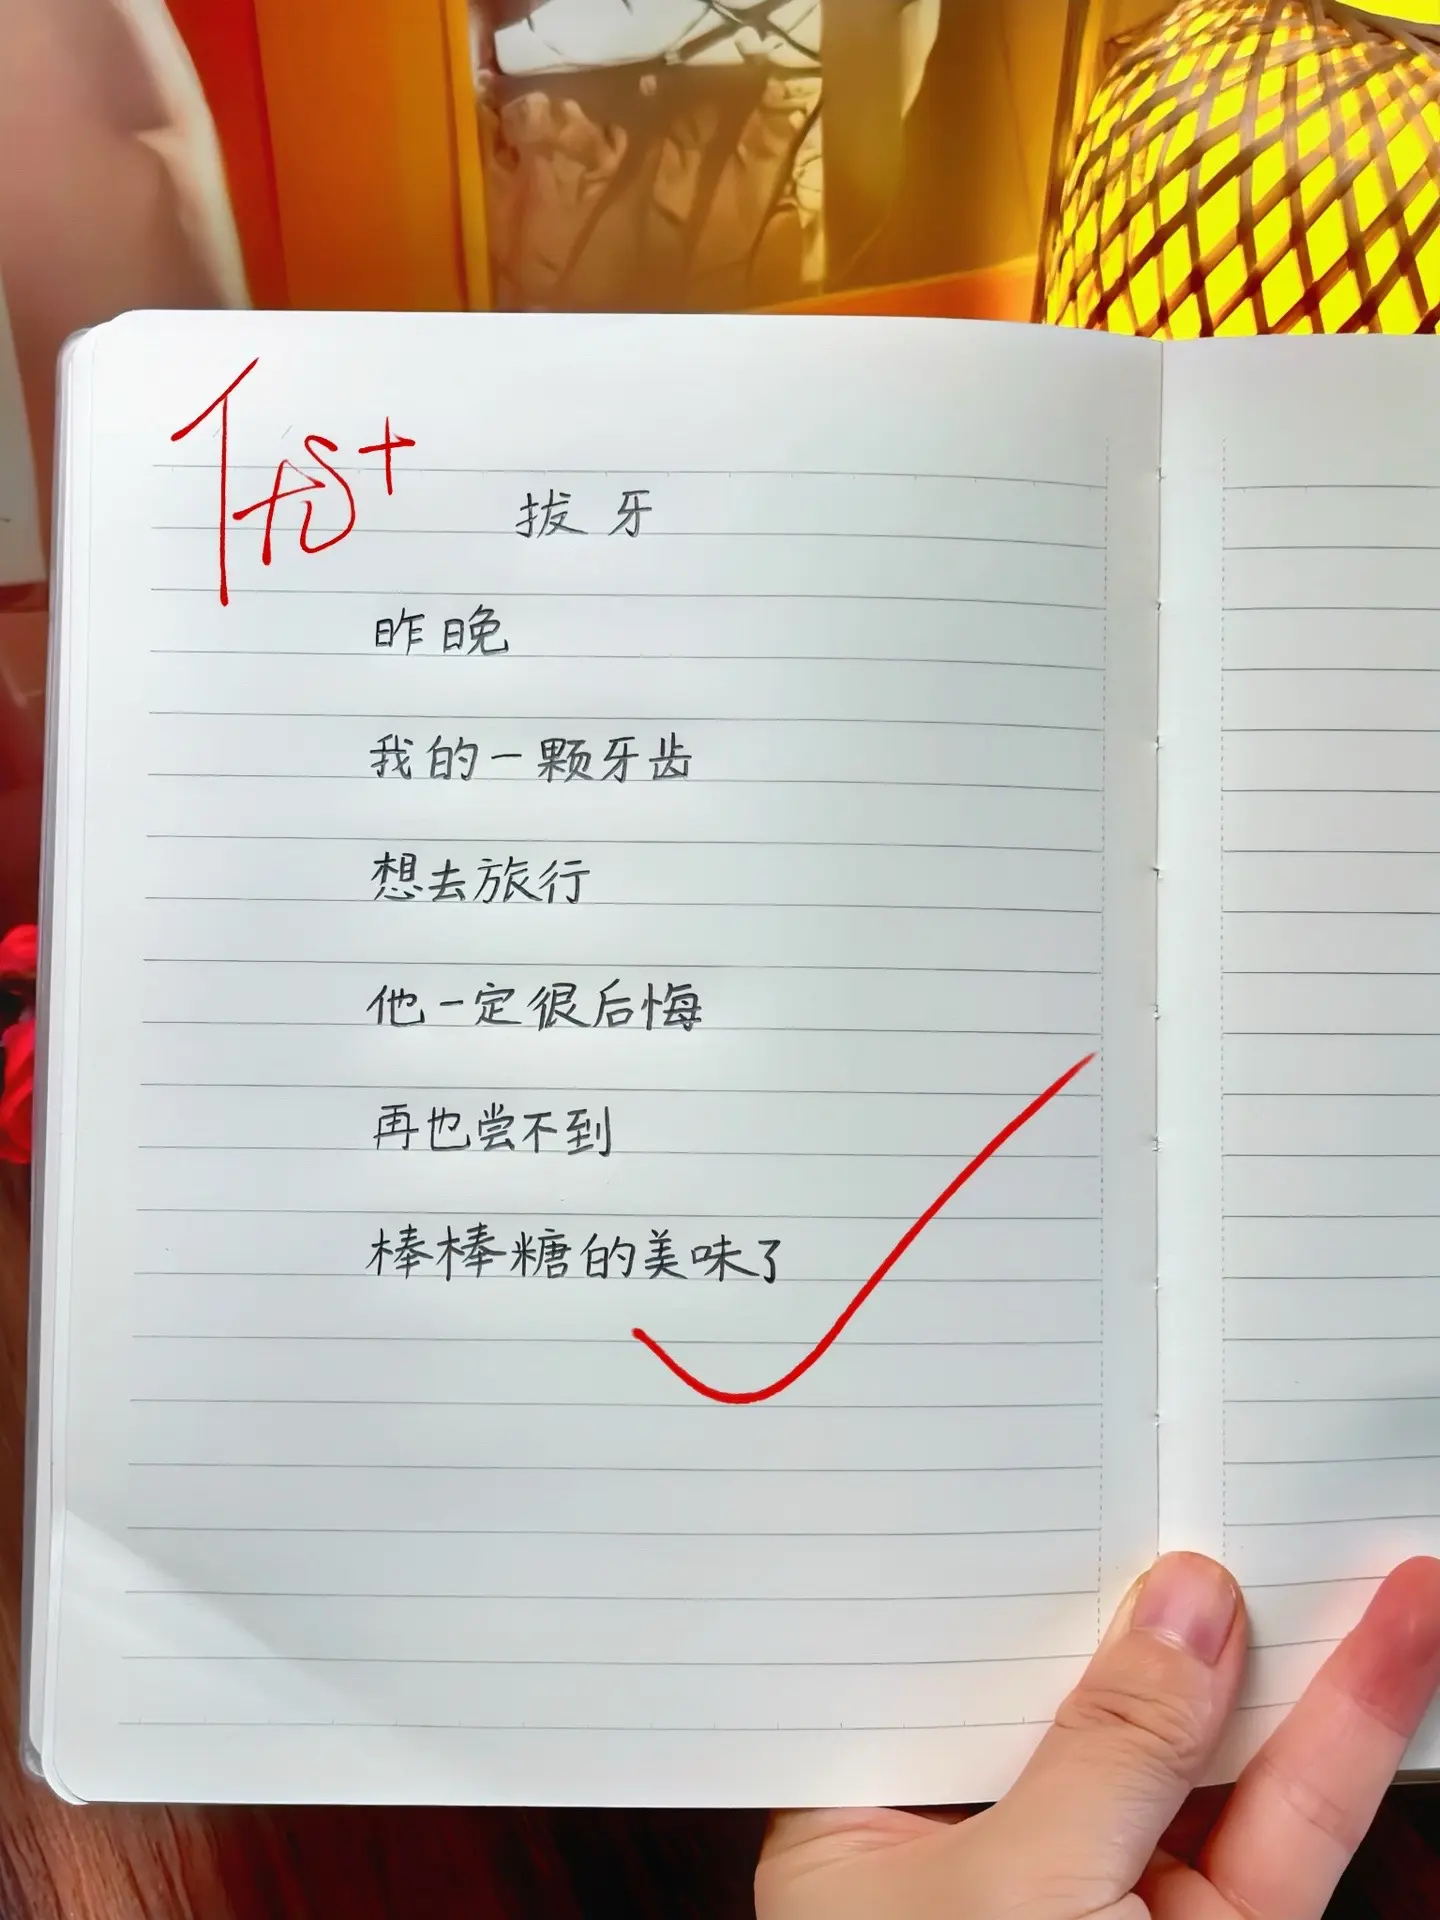 优+
拔牙
昨晚
我的一颗牙齿
想去旅行
他一定很后悔
再也尝不到
棒棒糖的美味了